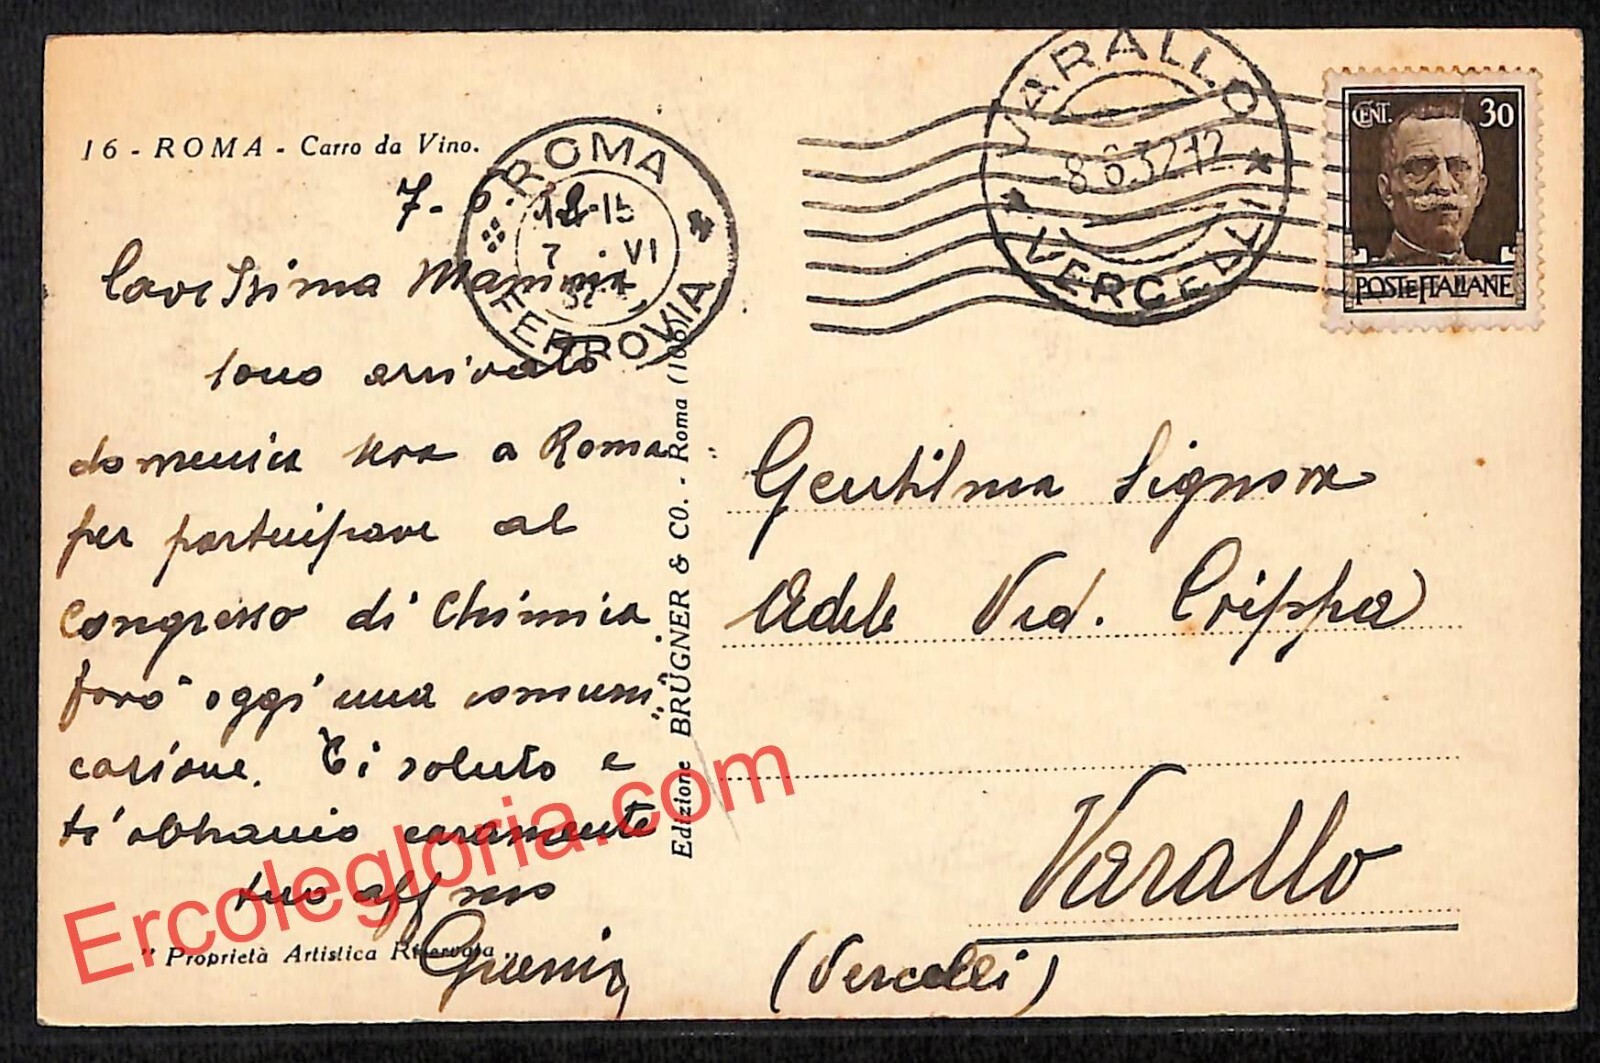 16 - ROMA - Carro da Vino.
7 - 6.
Carissima Mamma
sono arrivato
domenica sera a Roma
per partecipare al
Congresso di Chimica
farò oggi una comuni
cazione. Ti saluto e
ti abbraccio caramente
tuo aff mo
" Proprietà Artistica Riservata "
ROMA
FERROVIA
7 VI
32
Edizione "BRÜGNER & CO. - Roma (106)"
VARALLO
8.6.32.12
VERCELLI
CENT. 30
POSTE ITALIANE
Gentilma Signora
Adele Ved. Crippa
Varallo
(Vercelli)
Ercolegloria.com